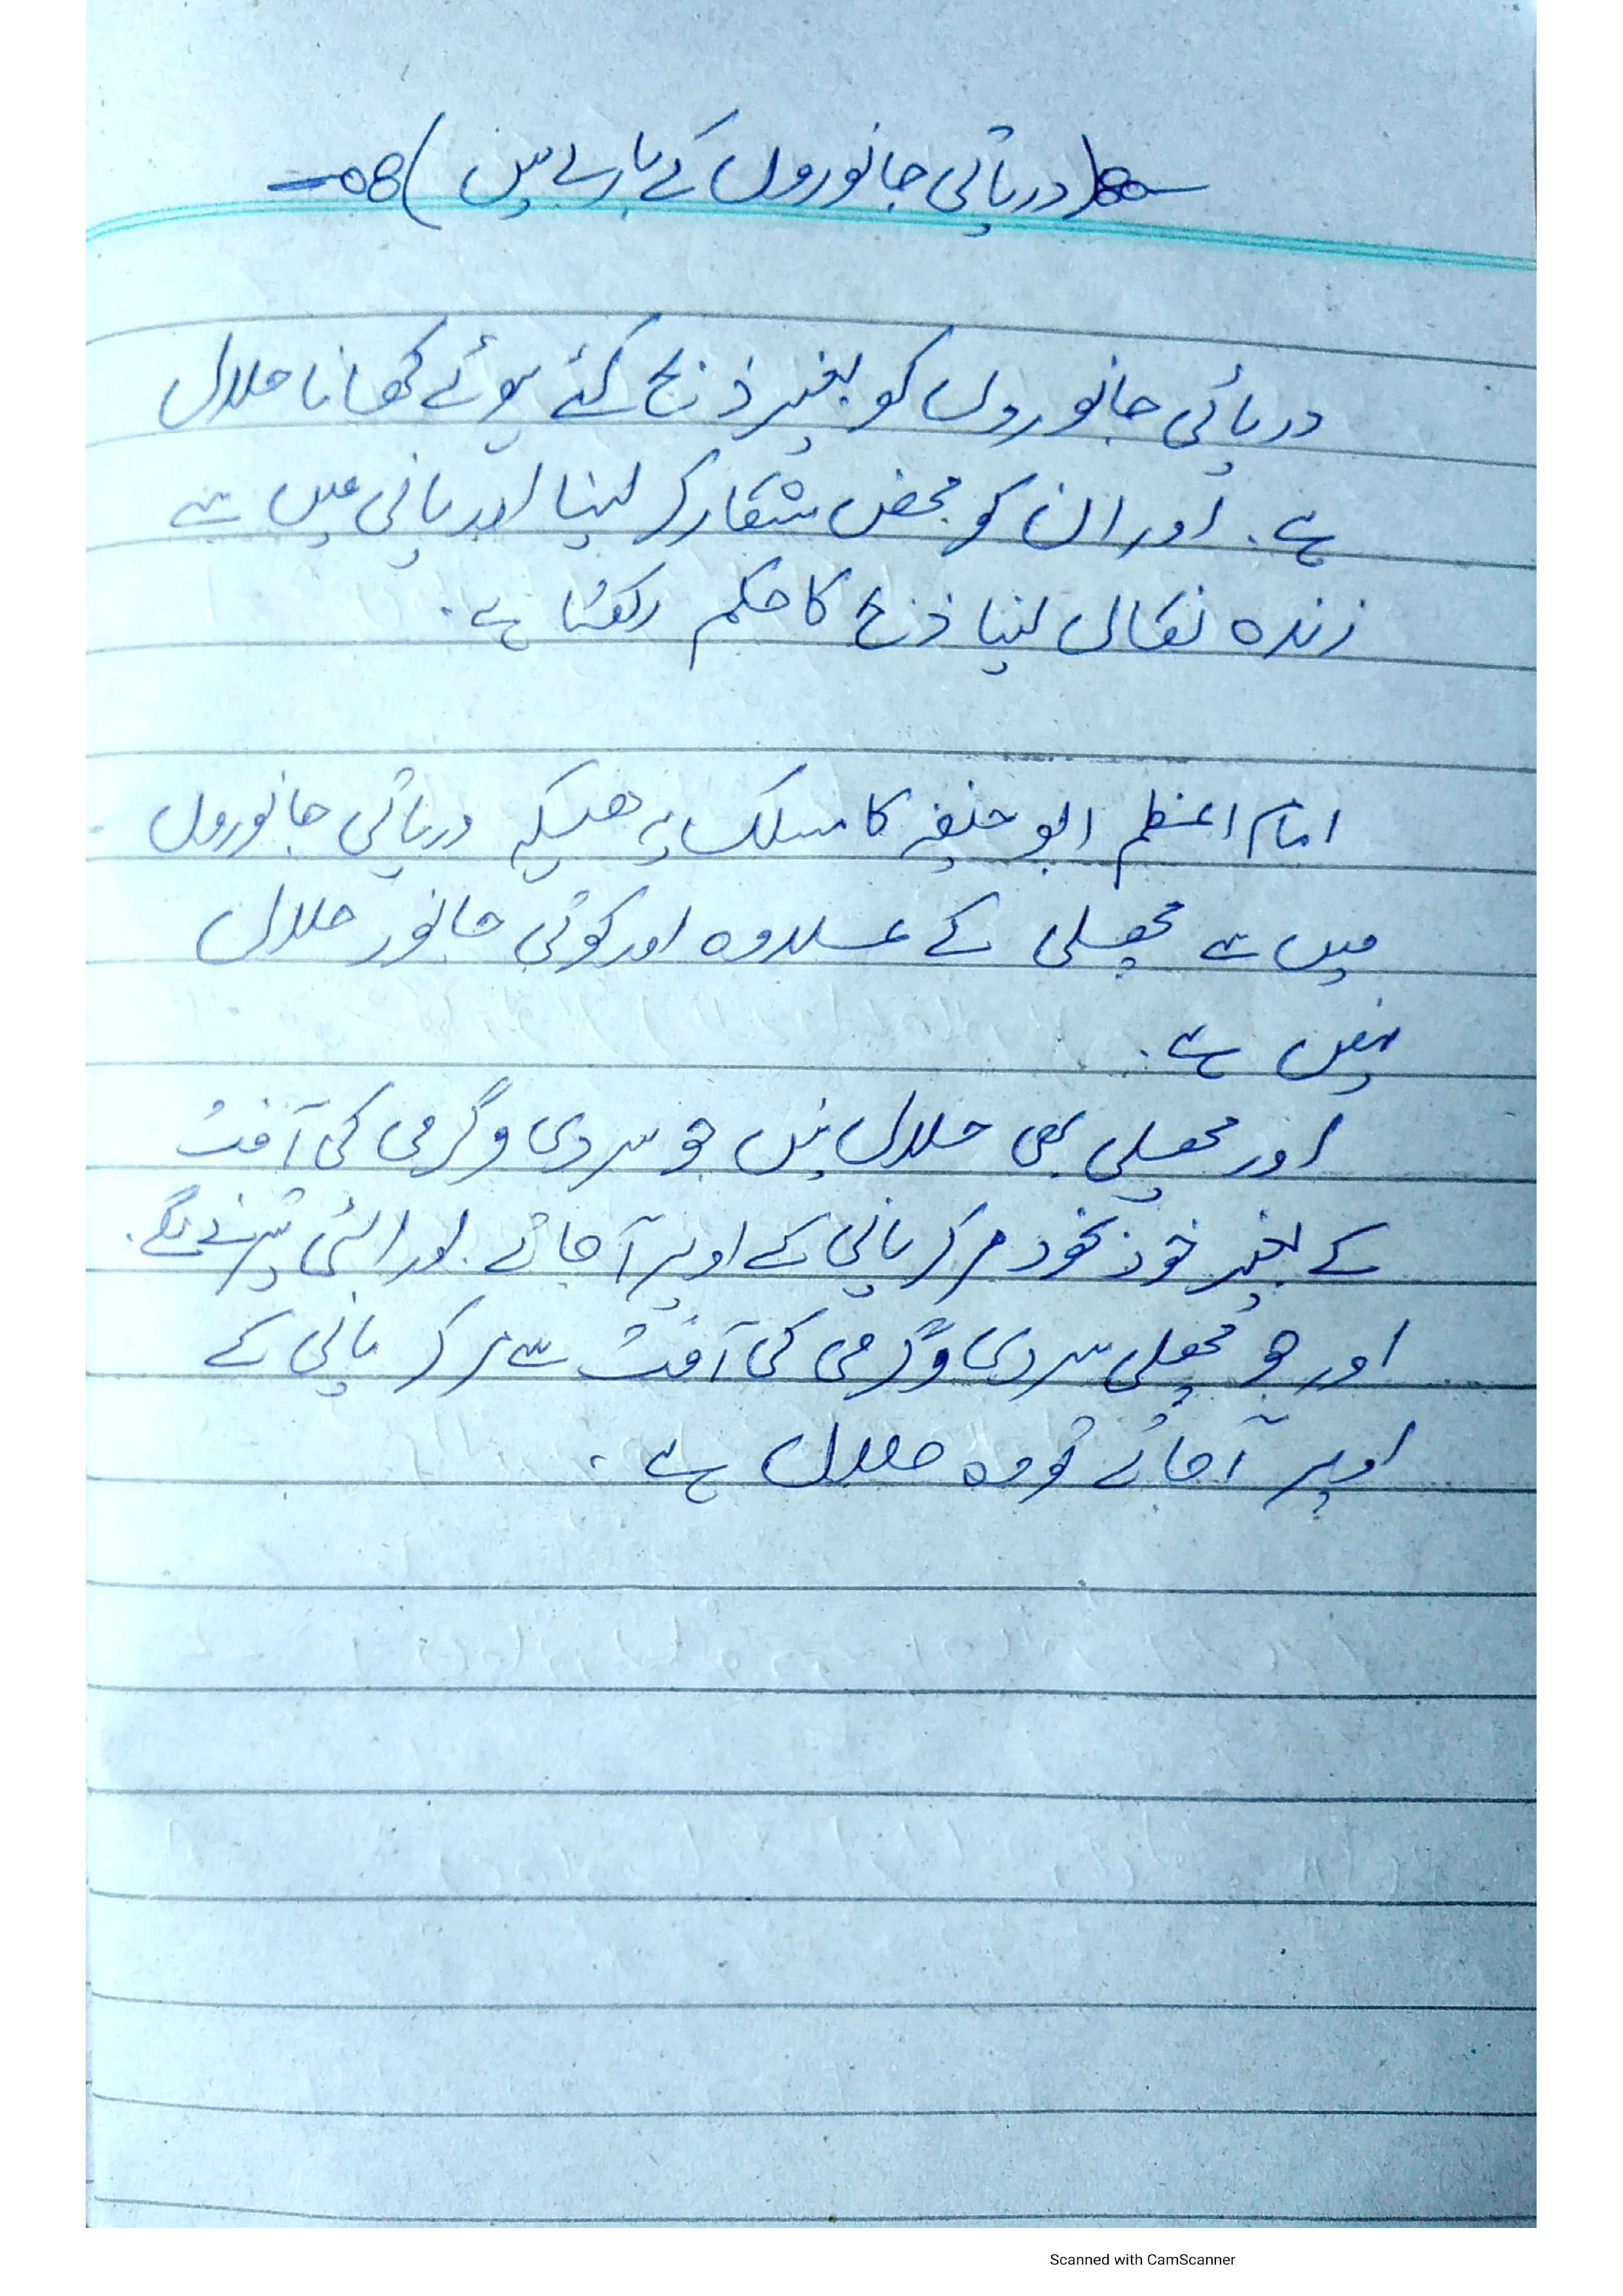 (دریائی جانوروں کے بارے میں)
دریائی جانوروں کو بغیر ذبح کئے ہوئے کھانا حلال
ہے۔ اور ان کو محض شکار کر لینا اور پانی میں سے
زندہ نکال لینا ذبح کا حکم رکھتا ہے۔
امام اعظم ابو حنیفہ کا مسلک یہ ھیکہ دریائی جانوروں
میں سے مچھلی کے علاوہ اور کوئی جانور حلال
نہیں ہے۔
اور مچھلی بھی حلال نہیں جو سردی و گرمی کی آفت
کے بغیر خود بخود مر کر پانی کے اوپر آ جائے۔ اور الٹی تیرنے لگے۔
اور جو مچھلی سردی و گرمی کی آفت سے مر کر پانی کے
اوپر آ جائے تو وہ حلال ہے۔
Scanned with CamScanner